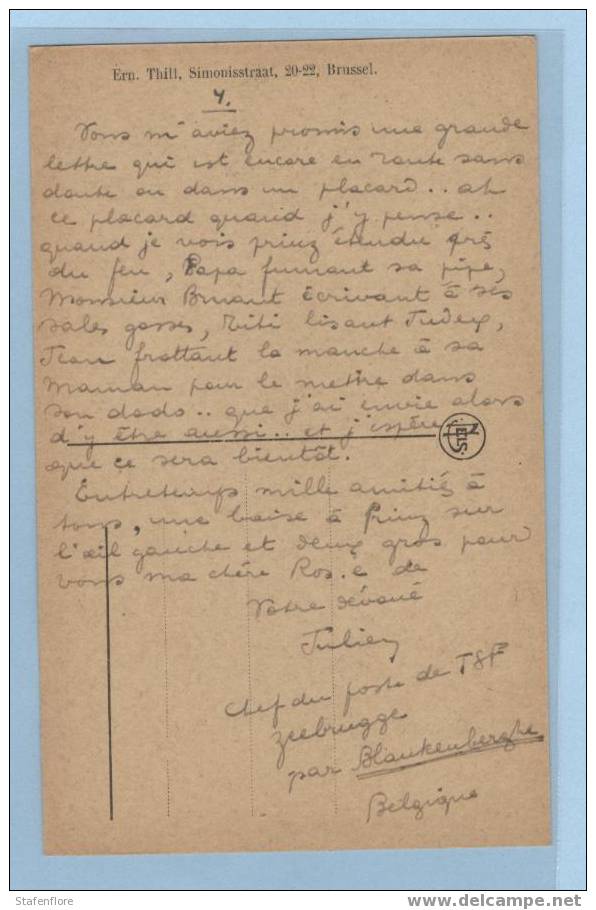 Ern. Thill, Simonisstraat, 20-22, Brussel.
4.
Vous m'aviez promis une grande
lettre qui est encore en route sans
doute ou dans un placard.. ah
ce placard quand j'y pense..
quand je vois Prinz étendu près
du feu, Papa fumant sa pipe,
Monsieur Bruant écrivant à ses
sales gosses, Titi lisant Judex,
Jean frottant la manche à sa
Maman pour le mettre dans
son dodo.. que j'ai envie alors
d'y être aussi.. et j'espère
NELS
que ce sera bientôt.
Entretemps mille amitiés à
tous, une baise à Prinz sur
l'œil gauche et deux gros pour
vous ma chère Ros. é de
Votre dévoué
Julien
Chef du poste de TSF
Zeebrugge
par Blankenberghe
Belgique
Stafenflore
delcampe.net